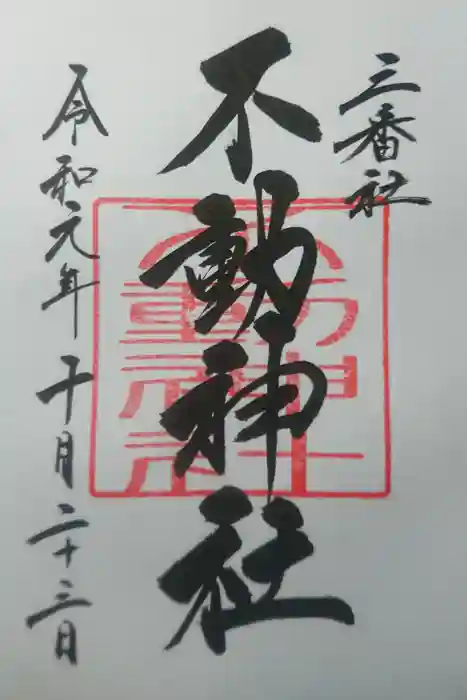 三番社
不動神社
令和元年十月二十三日
不動神社